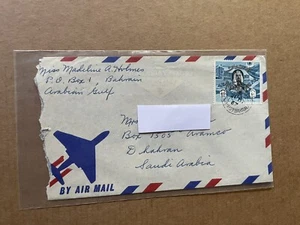 Miss Madeline A. Holmes
P.O Box 1, Bahrain
Arabian Gulf
Box 1305 Aramco
Dhahran
Saudi Arabia
BY AIR MAIL